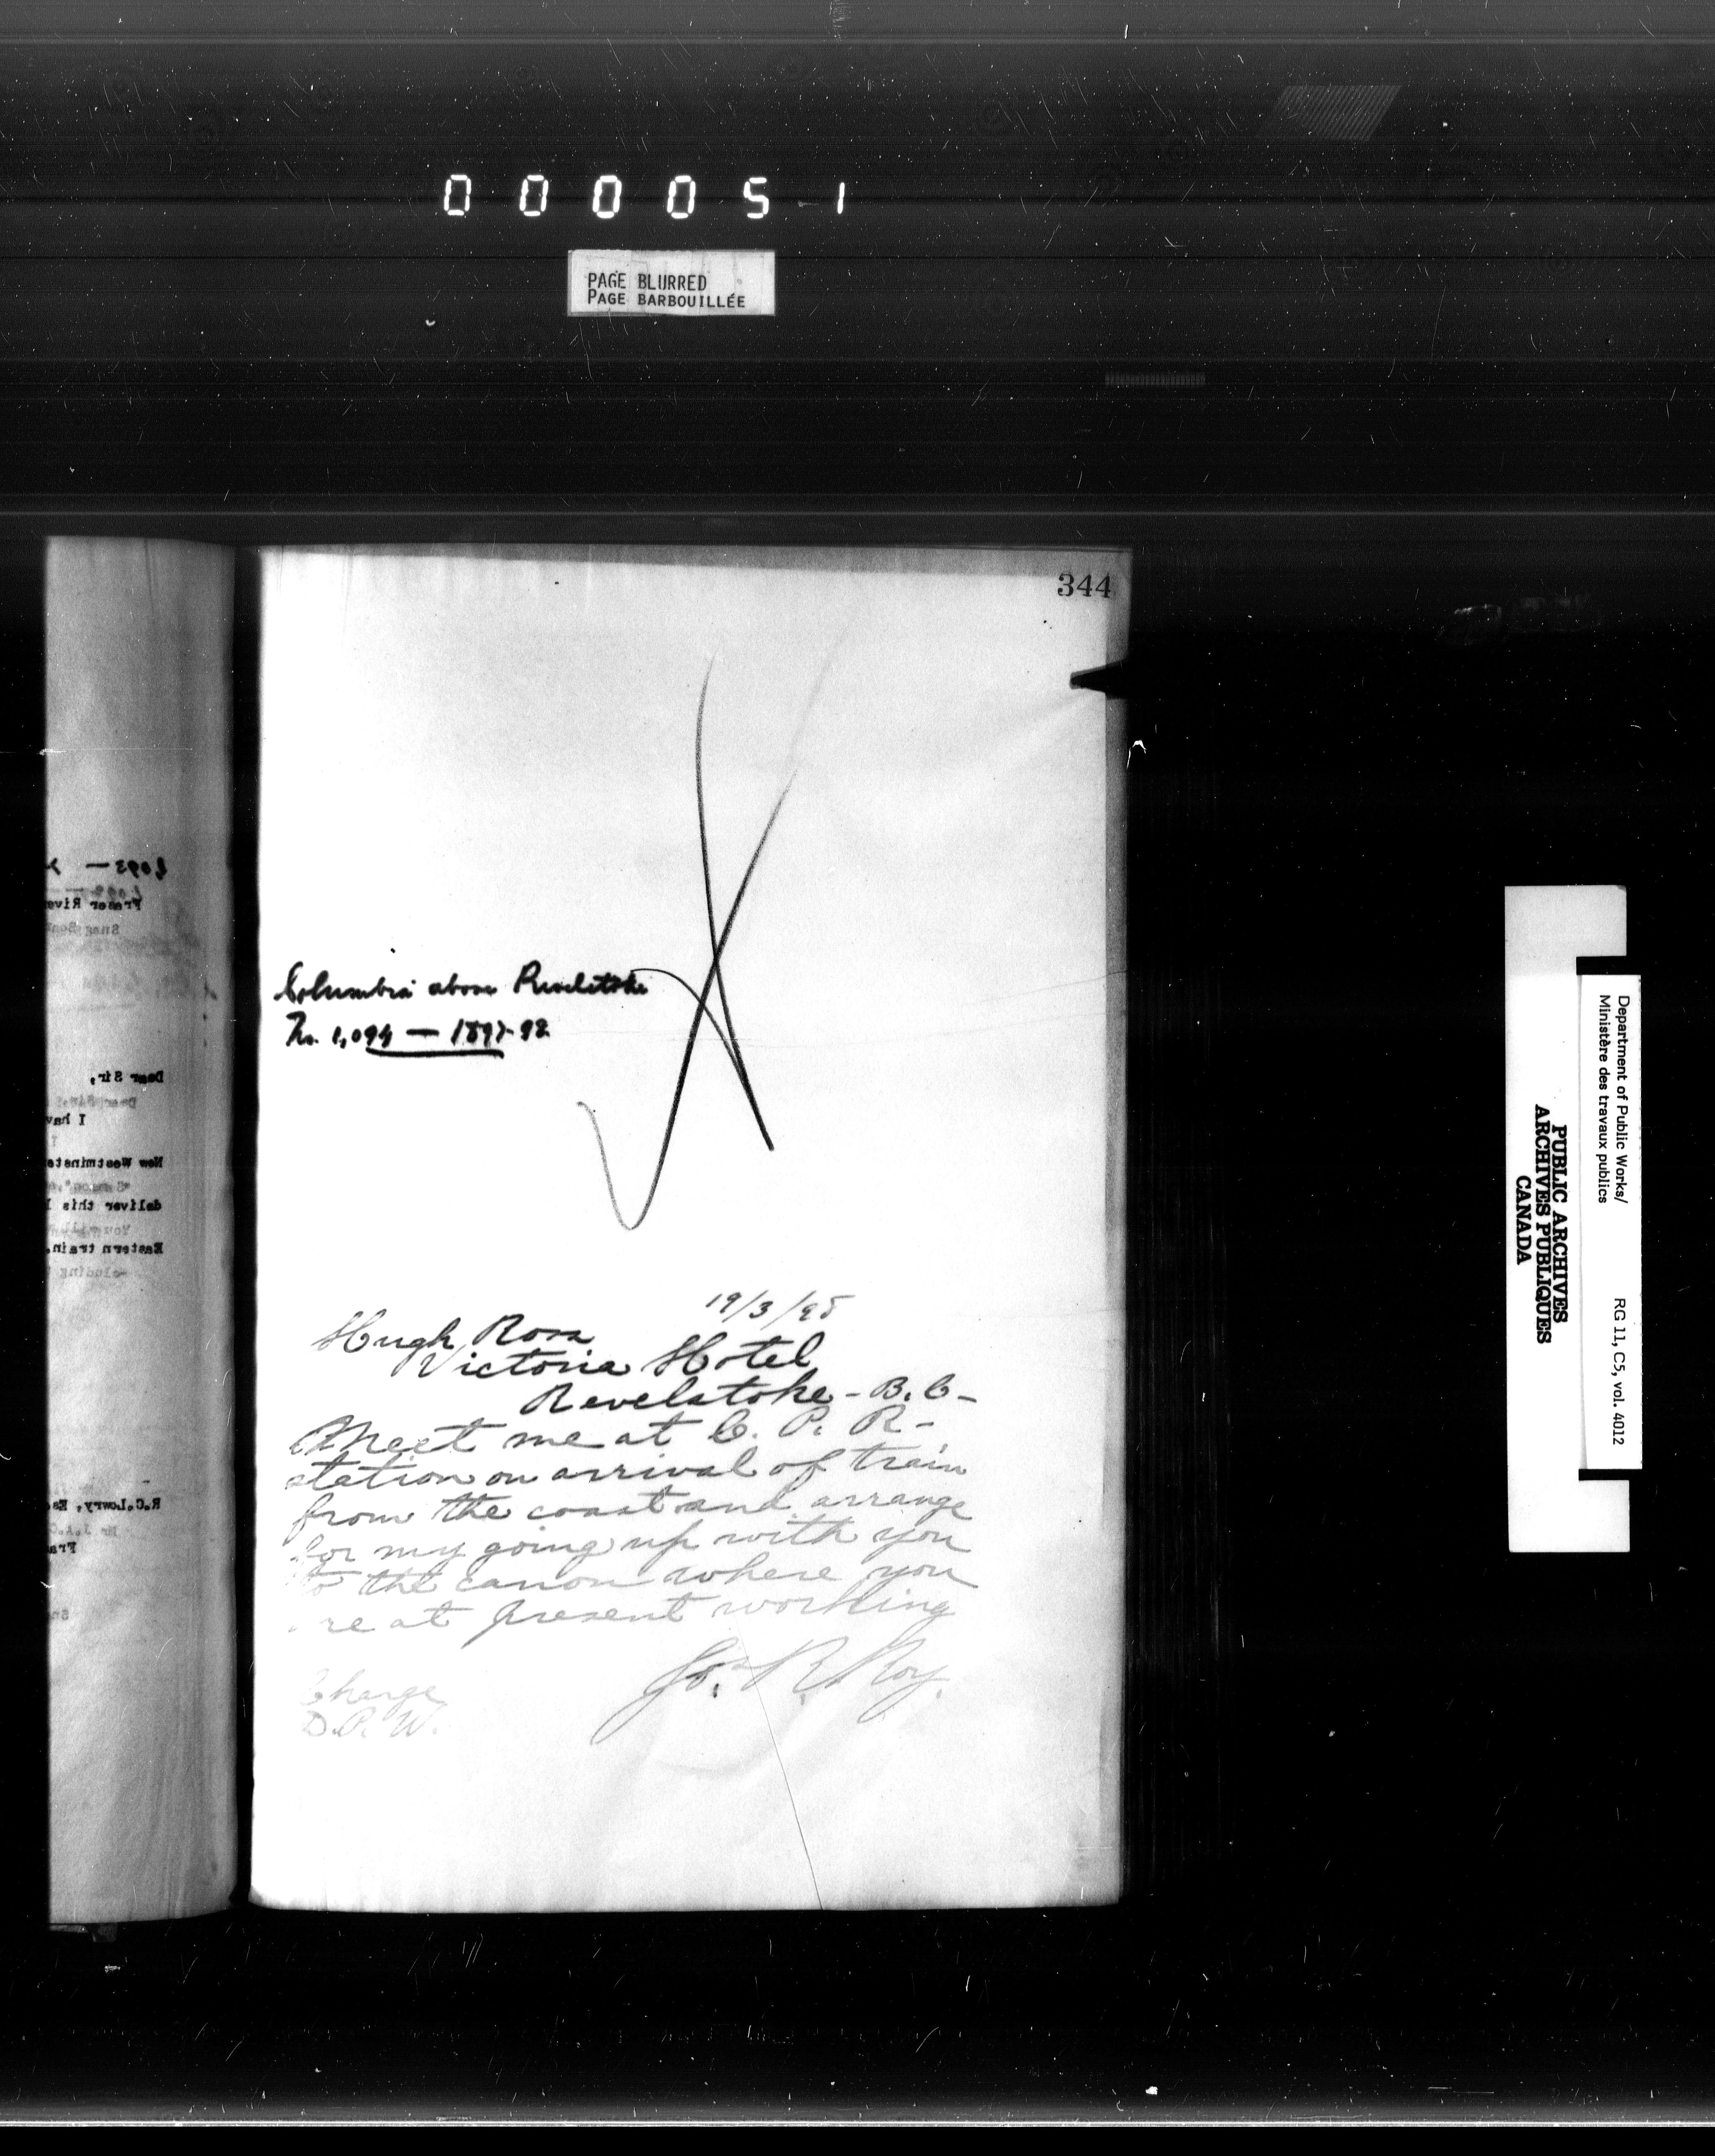 0 0 0 0 5 1
PAGE BLURRED
PAGE BARBOUILLÉE
344
Columbia above Revelstoke
No. 1,094 — 1897-98
19/3/98
Hugh Ross
Victoria Hotel
Revelstoke - B. C -
Meet me at C. P. R -
station on arrival of train
from the coast and arrange
for my going up with you
to the canon where you
re at present working
J. R. Roy.
Charge
D. P. W.
Fraser Rive
Dear Sir,
I hav
New Westminste
deliver this
Eastern train.
R.C. Lowry, Es
Fra
Department of Public Works/
Ministère des travaux publics
RG 11, C5, vol. 4012
PUBLIC ARCHIVES
ARCHIVES PUBLIQUES
CANADA